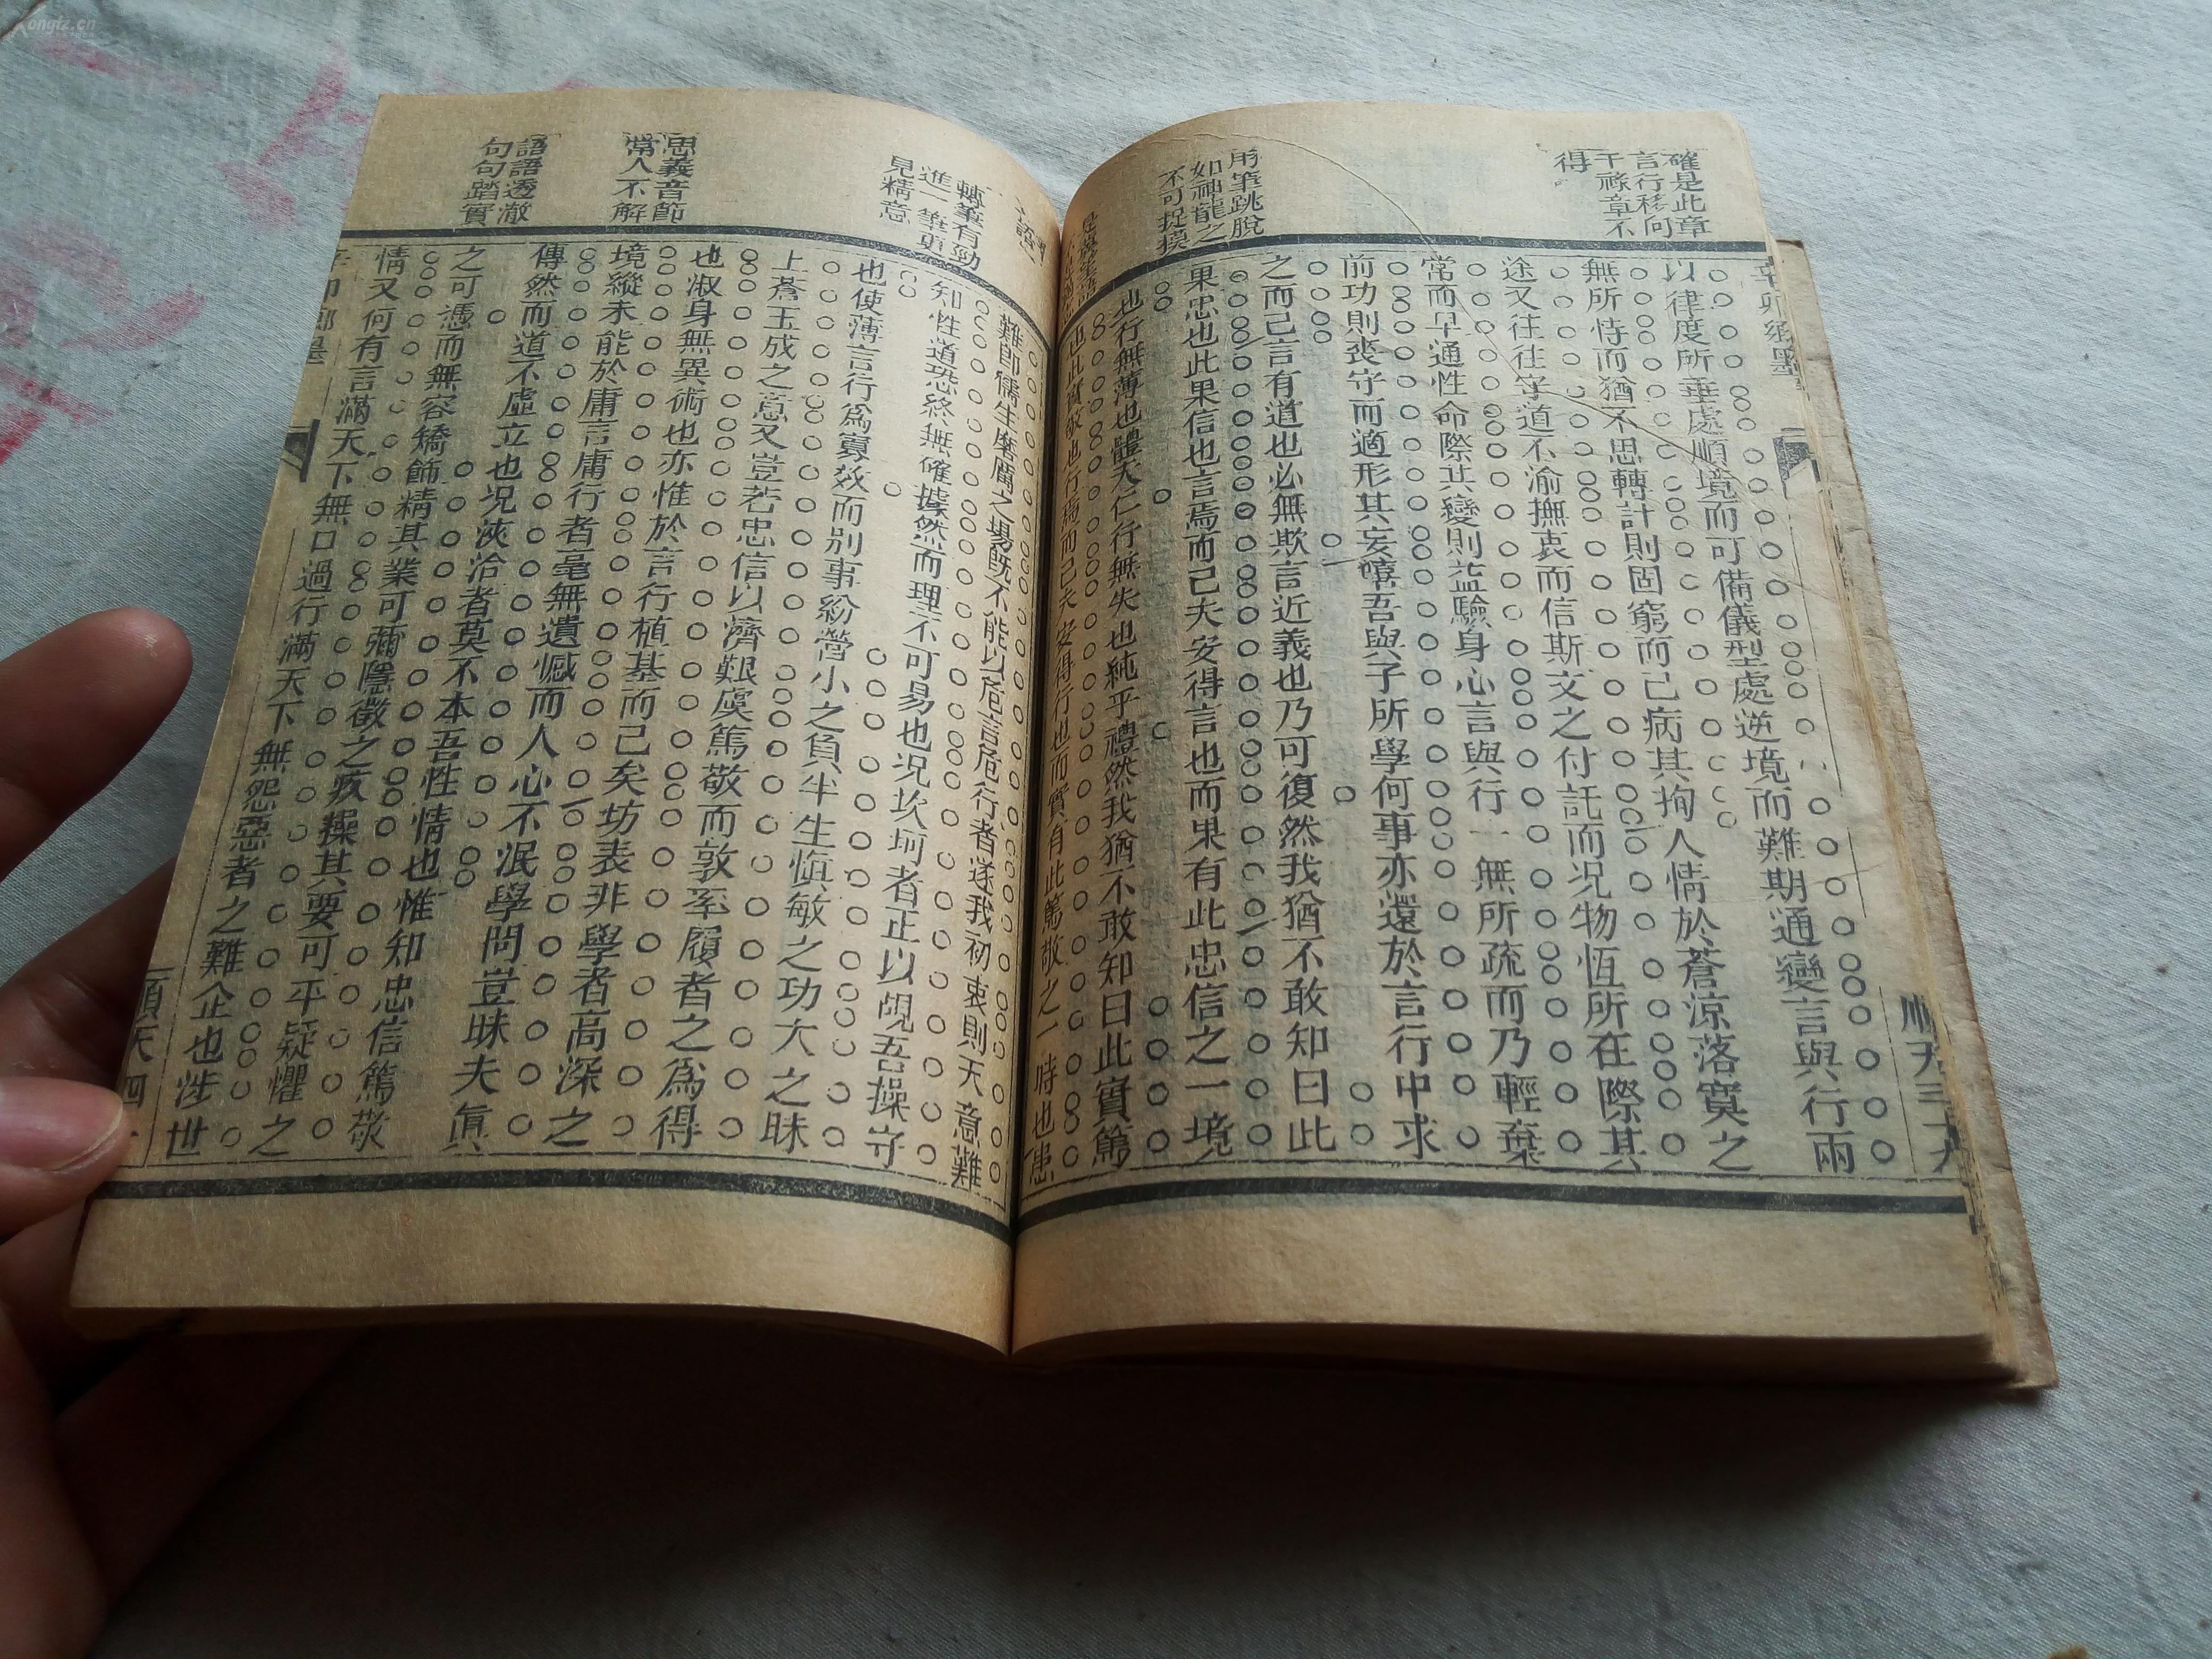 Kongfz.cn
確是此章
言行移向
干祿章不
得
用筆跳脫
如神龍之
不可捉摸
辛卯鄉墨
順天三十九
以律度所垂處順境而可備儀型處逆境而難期通變言與行兩
無所恃而猶不思轉計則固窮而己病其拘人情於蒼涼落寞之
途又往往守道不渝撫衷而信斯文之付託而况物恆所在際其
常而早通性命際其變則益驗身心言與行一無所疏而乃輕棄
前功則喪守而適形其妄嘻吾與子所學何事亦還於言行中求
之而己言有道也必無欺言近義也乃可復然我猶不敢知曰此
果忠也此果信也言焉而己夫安得言也而果有此忠信之一境
也行無薄也體天仁行無失也純乎禮然我猶不敢知曰此實篤
也此實敬也行焉而己夫安得行也而實有此篤敬之一時也患
轉筆有勁
進一筆更
見精意
思義音節
常人不解
語語透澈
句句踏實
難卽儒生磨厲之場旣不能以危言危行者遂我初衷則天意難
知性道恐終無確據然而理不可易也况坎坷者正以覘吾操守
也使薄言行爲寡效而別事紛營小之負半生愼敏之功大之昧
上蒼玉成之意又豈若忠信以濟艱虞篤敬而敦至履者之爲得
也淑身無異術也亦惟於言行植基而己矣坊表非學者高深之
境縱未能於庸言庸行者毫無遺憾而人心不泯學問豈昧夫眞
傳然而道不虛立也况浹洽者莫不本吾性情也惟知忠信篤敬
之可憑而無容矯飾精其業可彌隱微之疚操其要可平疑懼之
情又何有言滿天下無口過行滿天下無怨惡者之難企也涉世
辛卯鄉墨
順天四十